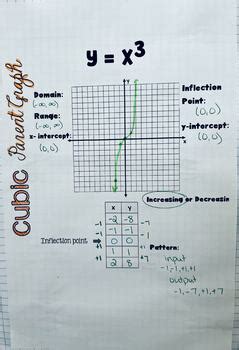 Cubic Parent Graph
y = x³
Domain:
(-∞, ∞)
Range:
(-∞, ∞)
x-intercept:
(0,0)
Inflection
Point:
(0,0)
y-intercept:
(0,0)
Y
X
Increasing or Decreasin
x y
-2 -8
-1 -1
0 0
1 1
2 8
-1
-1
+1
+1
-7
-1
+1
+7
Inflection point
Pattern:
input
-1,-1,+1,+1
output
-1,-7,+1,+7